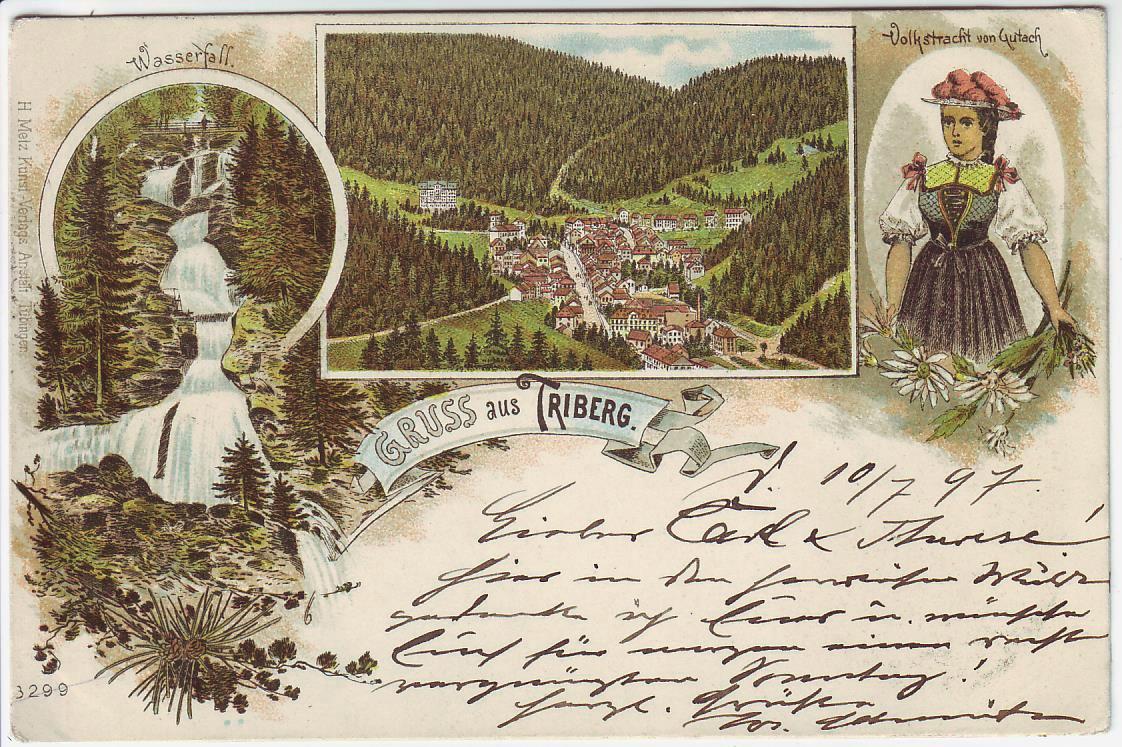 Wasserfall.
Volkstracht von Gutach
H Metz Kunst-Verlags Anstalt Tübingen.
GRUSS aus TRIBERG.
d. 10/7 97.
Lieber Carl & Therese!
Hier in den herrlichen
gedenke ich Eurer u. wünsche
Euch für morgen einen recht
vergnügten Sonntag!
Herzl. Grüße
3299